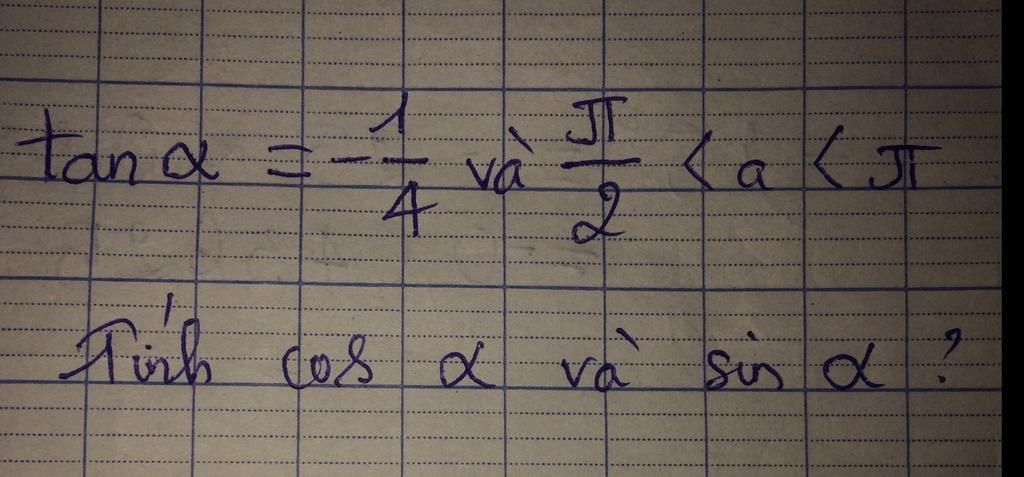 tan α = -1/4 và π/2 < a < π
Tính cos α và sin α ?